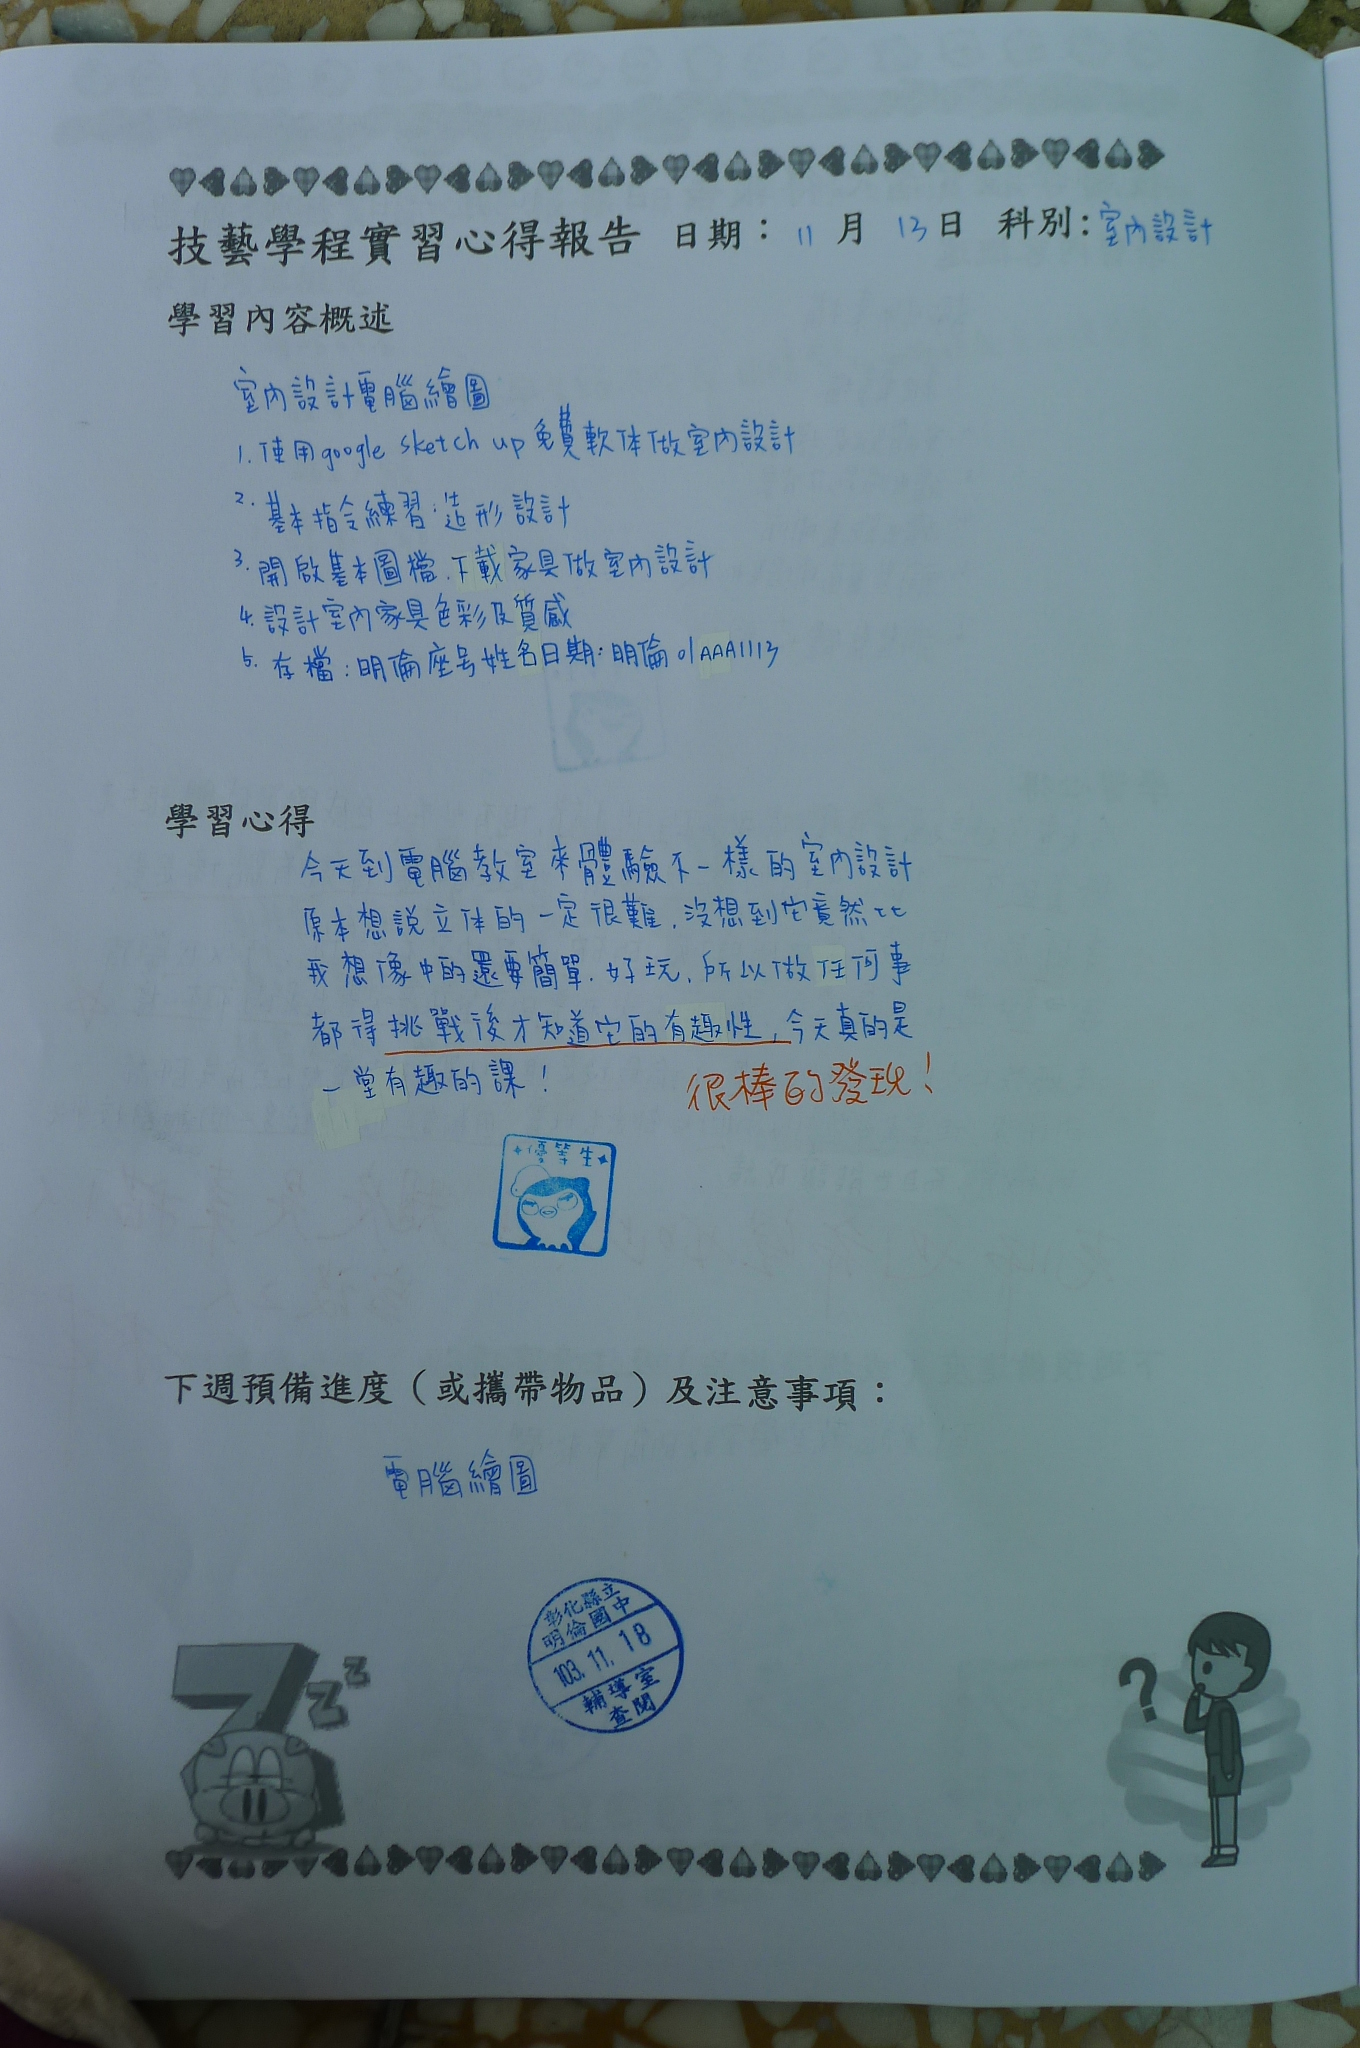 技藝學程實習心得報告 日期：11月13日 科別：室內設計
學習內容概述
室內設計電腦繪圖
1.使用google sketch up免費軟体做室內設計
2.基本指令練習:造形設計
3.開啟基本圖檔.下載家具做室內設計
4.設計室內家具色彩及質感
5.存檔:明倫座号姓名日期:明倫01AAA1113
學習心得
今天到電腦教室來體驗不一樣的室內設計
原本想說立体的一定很難,沒想到它竟然比
我想像中的還要簡單.好玩,所以做任何事
都得挑戰後才知道它的有趣性,今天真的是
一堂有趣的課!
很棒的發現!
優等生
下週預備進度（或攜帶物品）及注意事項：
電腦繪圖
彰化縣立
明倫國中
103.11.18
輔導室
查閱
7zz
?